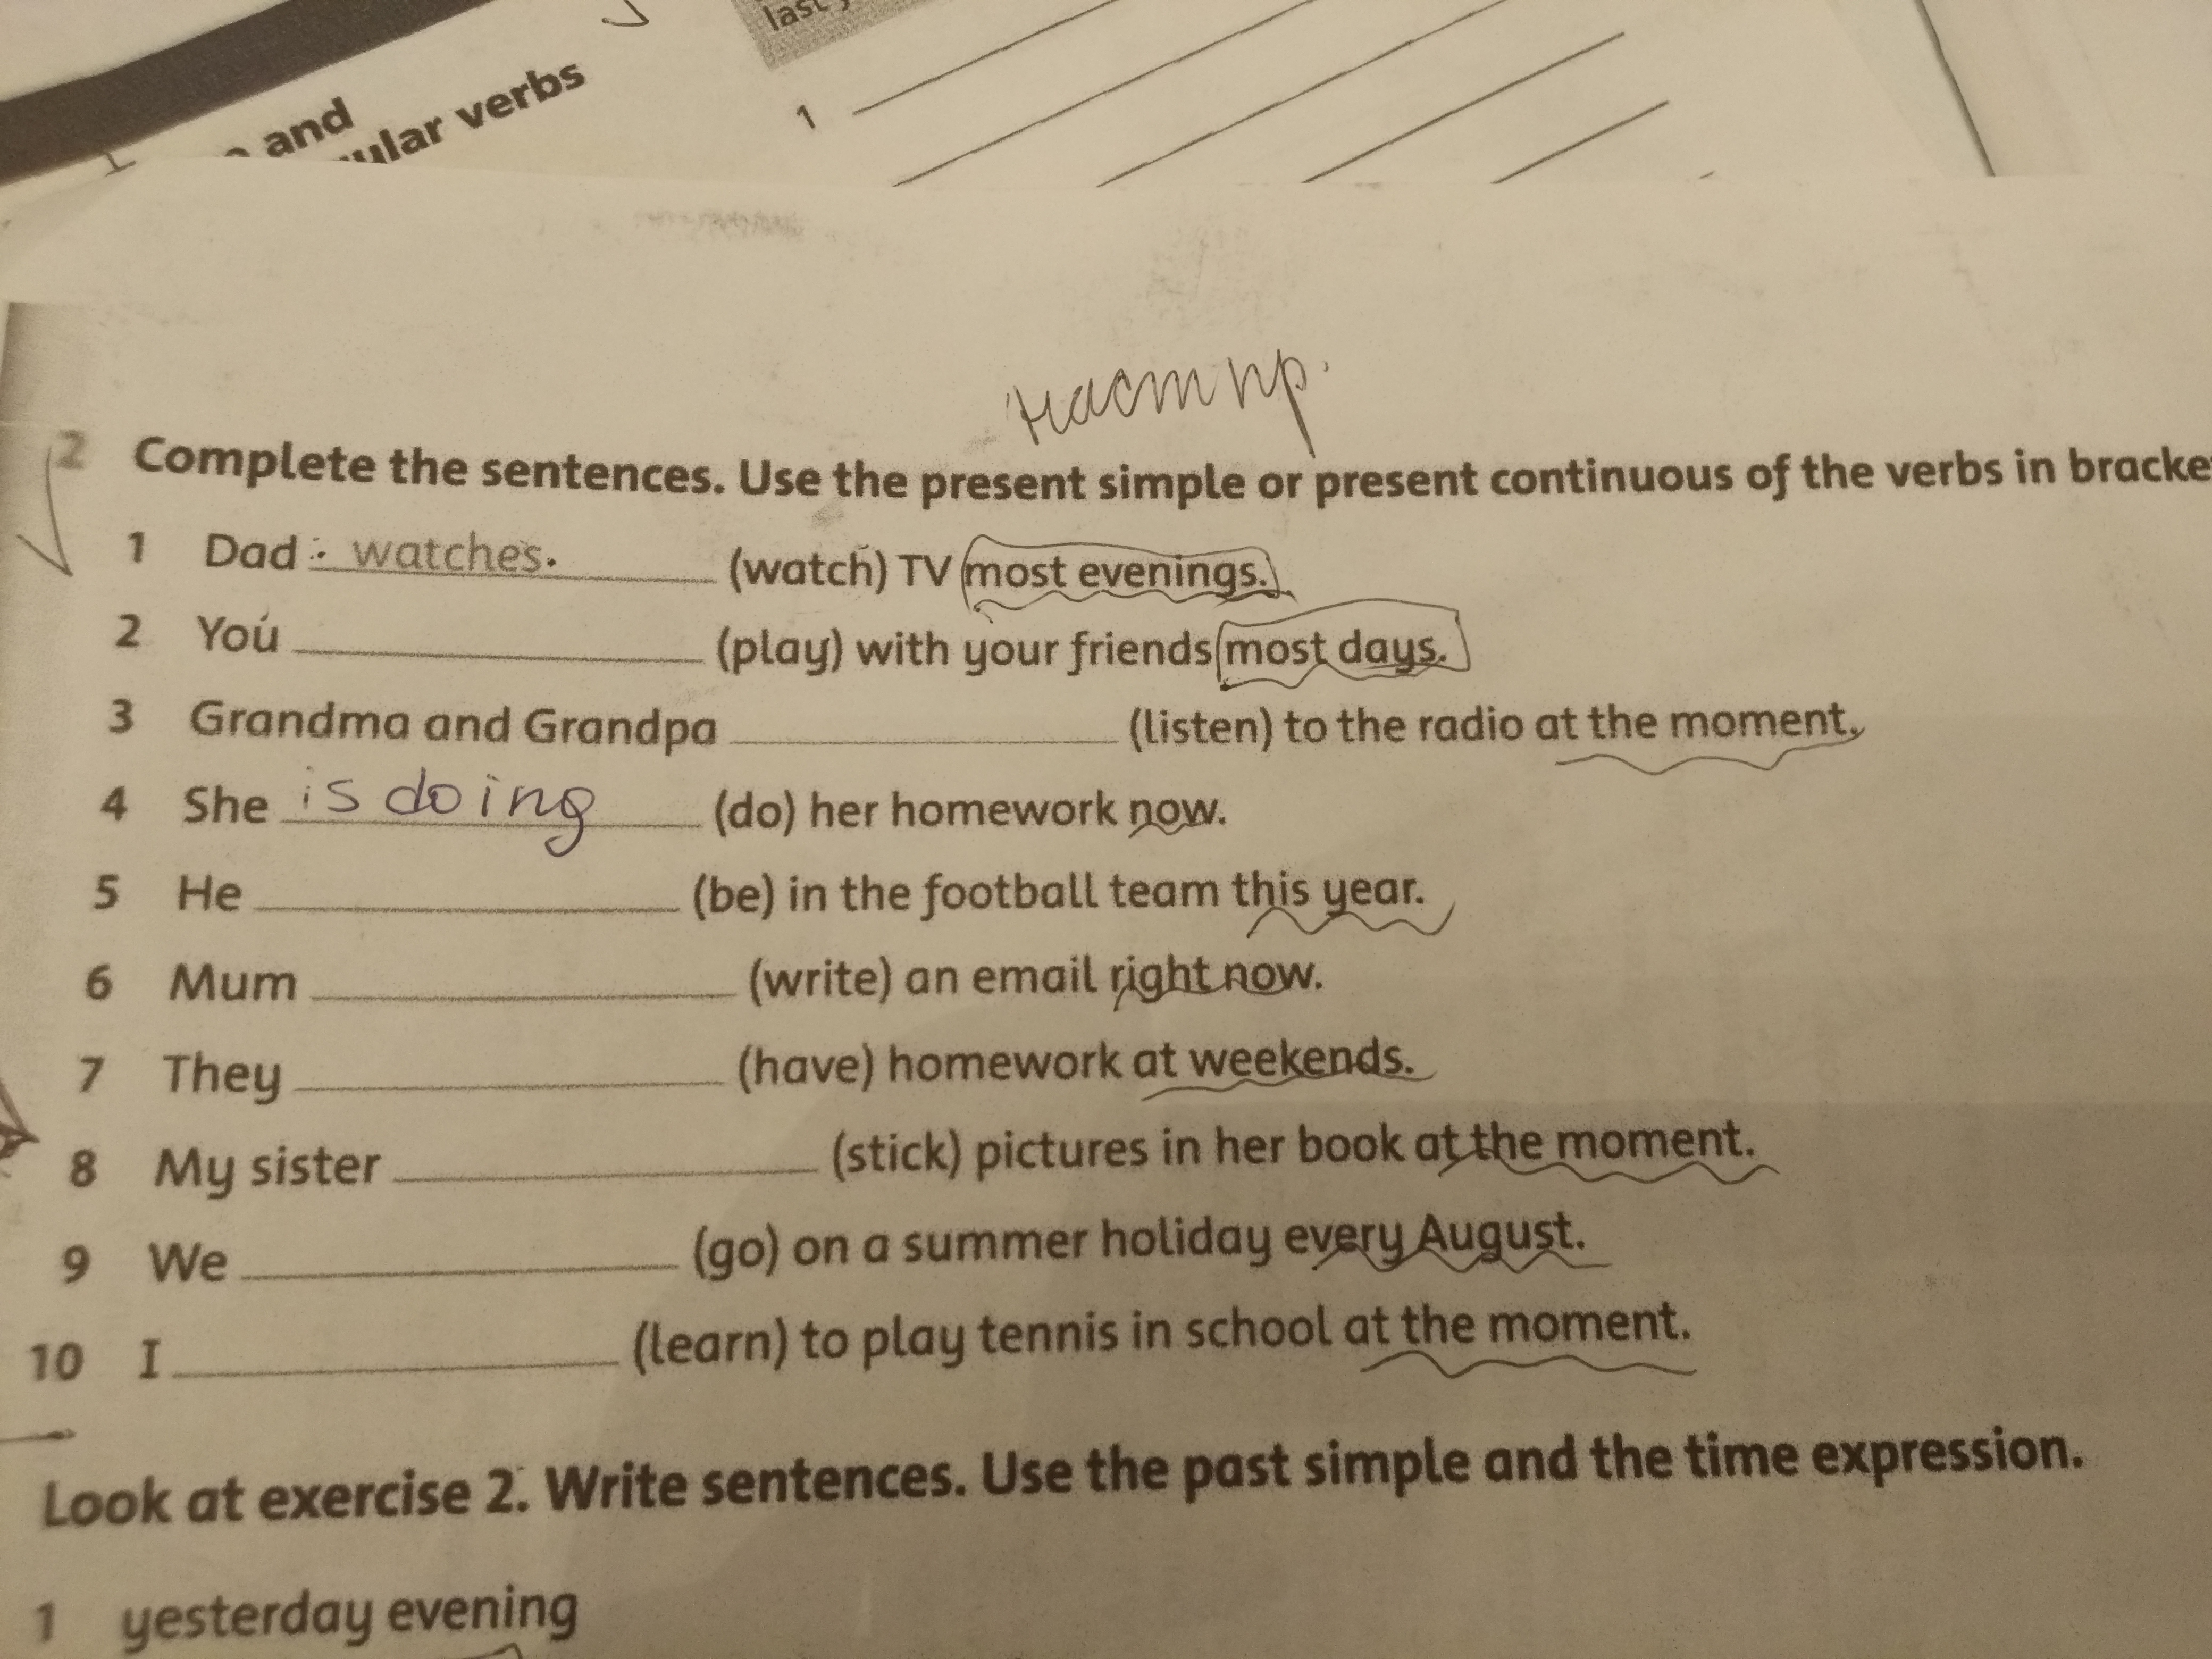 last
and
ular verbs
1
наст пр.
2 Complete the sentences. Use the present simple or present continuous of the verbs in bracke
1 Dad watches. (watch) TV most evenings.
2 You (play) with your friends most days.
3 Grandma and Grandpa (listen) to the radio at the moment.
4 She is doing (do) her homework now.
5 He (be) in the football team this year.
6 Mum (write) an email right now.
7 They (have) homework at weekends.
8 My sister (stick) pictures in her book at the moment.
9 We (go) on a summer holiday every August.
10 I (learn) to play tennis in school at the moment.
Look at exercise 2. Write sentences. Use the past simple and the time expression.
1 yesterday evening